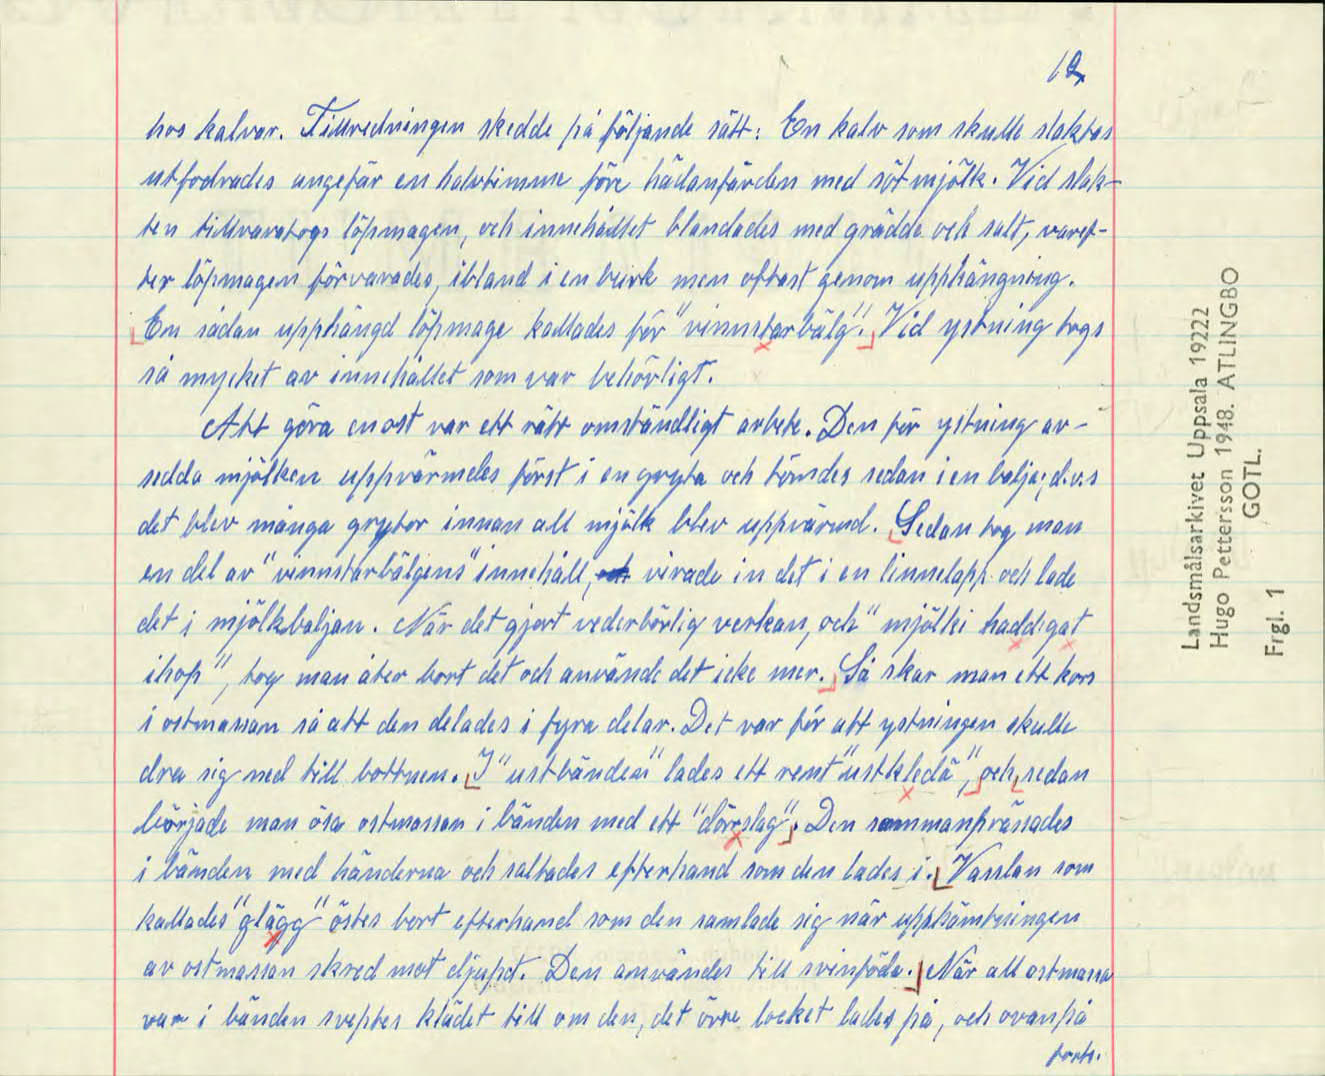 12
hos kalvar. Tillredningen skedde på följande sätt: En kalv som skulle slaktas
utfodrades ungefär en halvtimme före hädanfärden med söt mjölk. Vid slak-
ten tillvaratogs löpmagen, och innehållet blandades med grädde och salt, varef-
ter löpmagen förvarades, ibland i en burk men oftast genom upphängning.
En sådan upphängd löpmage kallades för "vinnstarbälg". Vid ystning togs
så mycket av innehållet som var behövligt.
Att göra en ost var ett rätt omständligt arbete. Den för ystning av-
sedda mjölken uppvärmdes först i en gryta och tömdes sedan i en balja; d.v.s
det blev många grytor innan all mjölk blev uppvärmd. Sedan tog man
en del av "vinnstarbälgens" innehåll, virade in det i en linnelapp och lade
det i mjölkbaljan. När det gjort vederbörlig verkan, och "mjölki haddigat
ihop", tog man åter bort det och använde det icke mer. Så skar man ett kors
i ostmassan så att den delades i fyra delar. Det var för att ystningen skulle
dra sig ned till bottnen. I "ustbänden" lades ett rent "ustkledä", och sedan
började man ösa ostmassan i bänden med ett "dörslag". Den sammanpressades
i bänden med händerna och saltades efterhand som den lades i. Vasslan som
kallades "glägg" östes bort efterhand som den samlade sig när upphämtningen
av ostmassan skred mot djupet. Den användes till svinföda. När all ostmassa
var i bänden sveptes klädet till om den, det övre locket lades på, och ovanpå
forts.
Landsmålsarkivet Uppsala 19222
Hugo Pettersson 1948. ATLINGBO
GOTL.
Frgl. 1